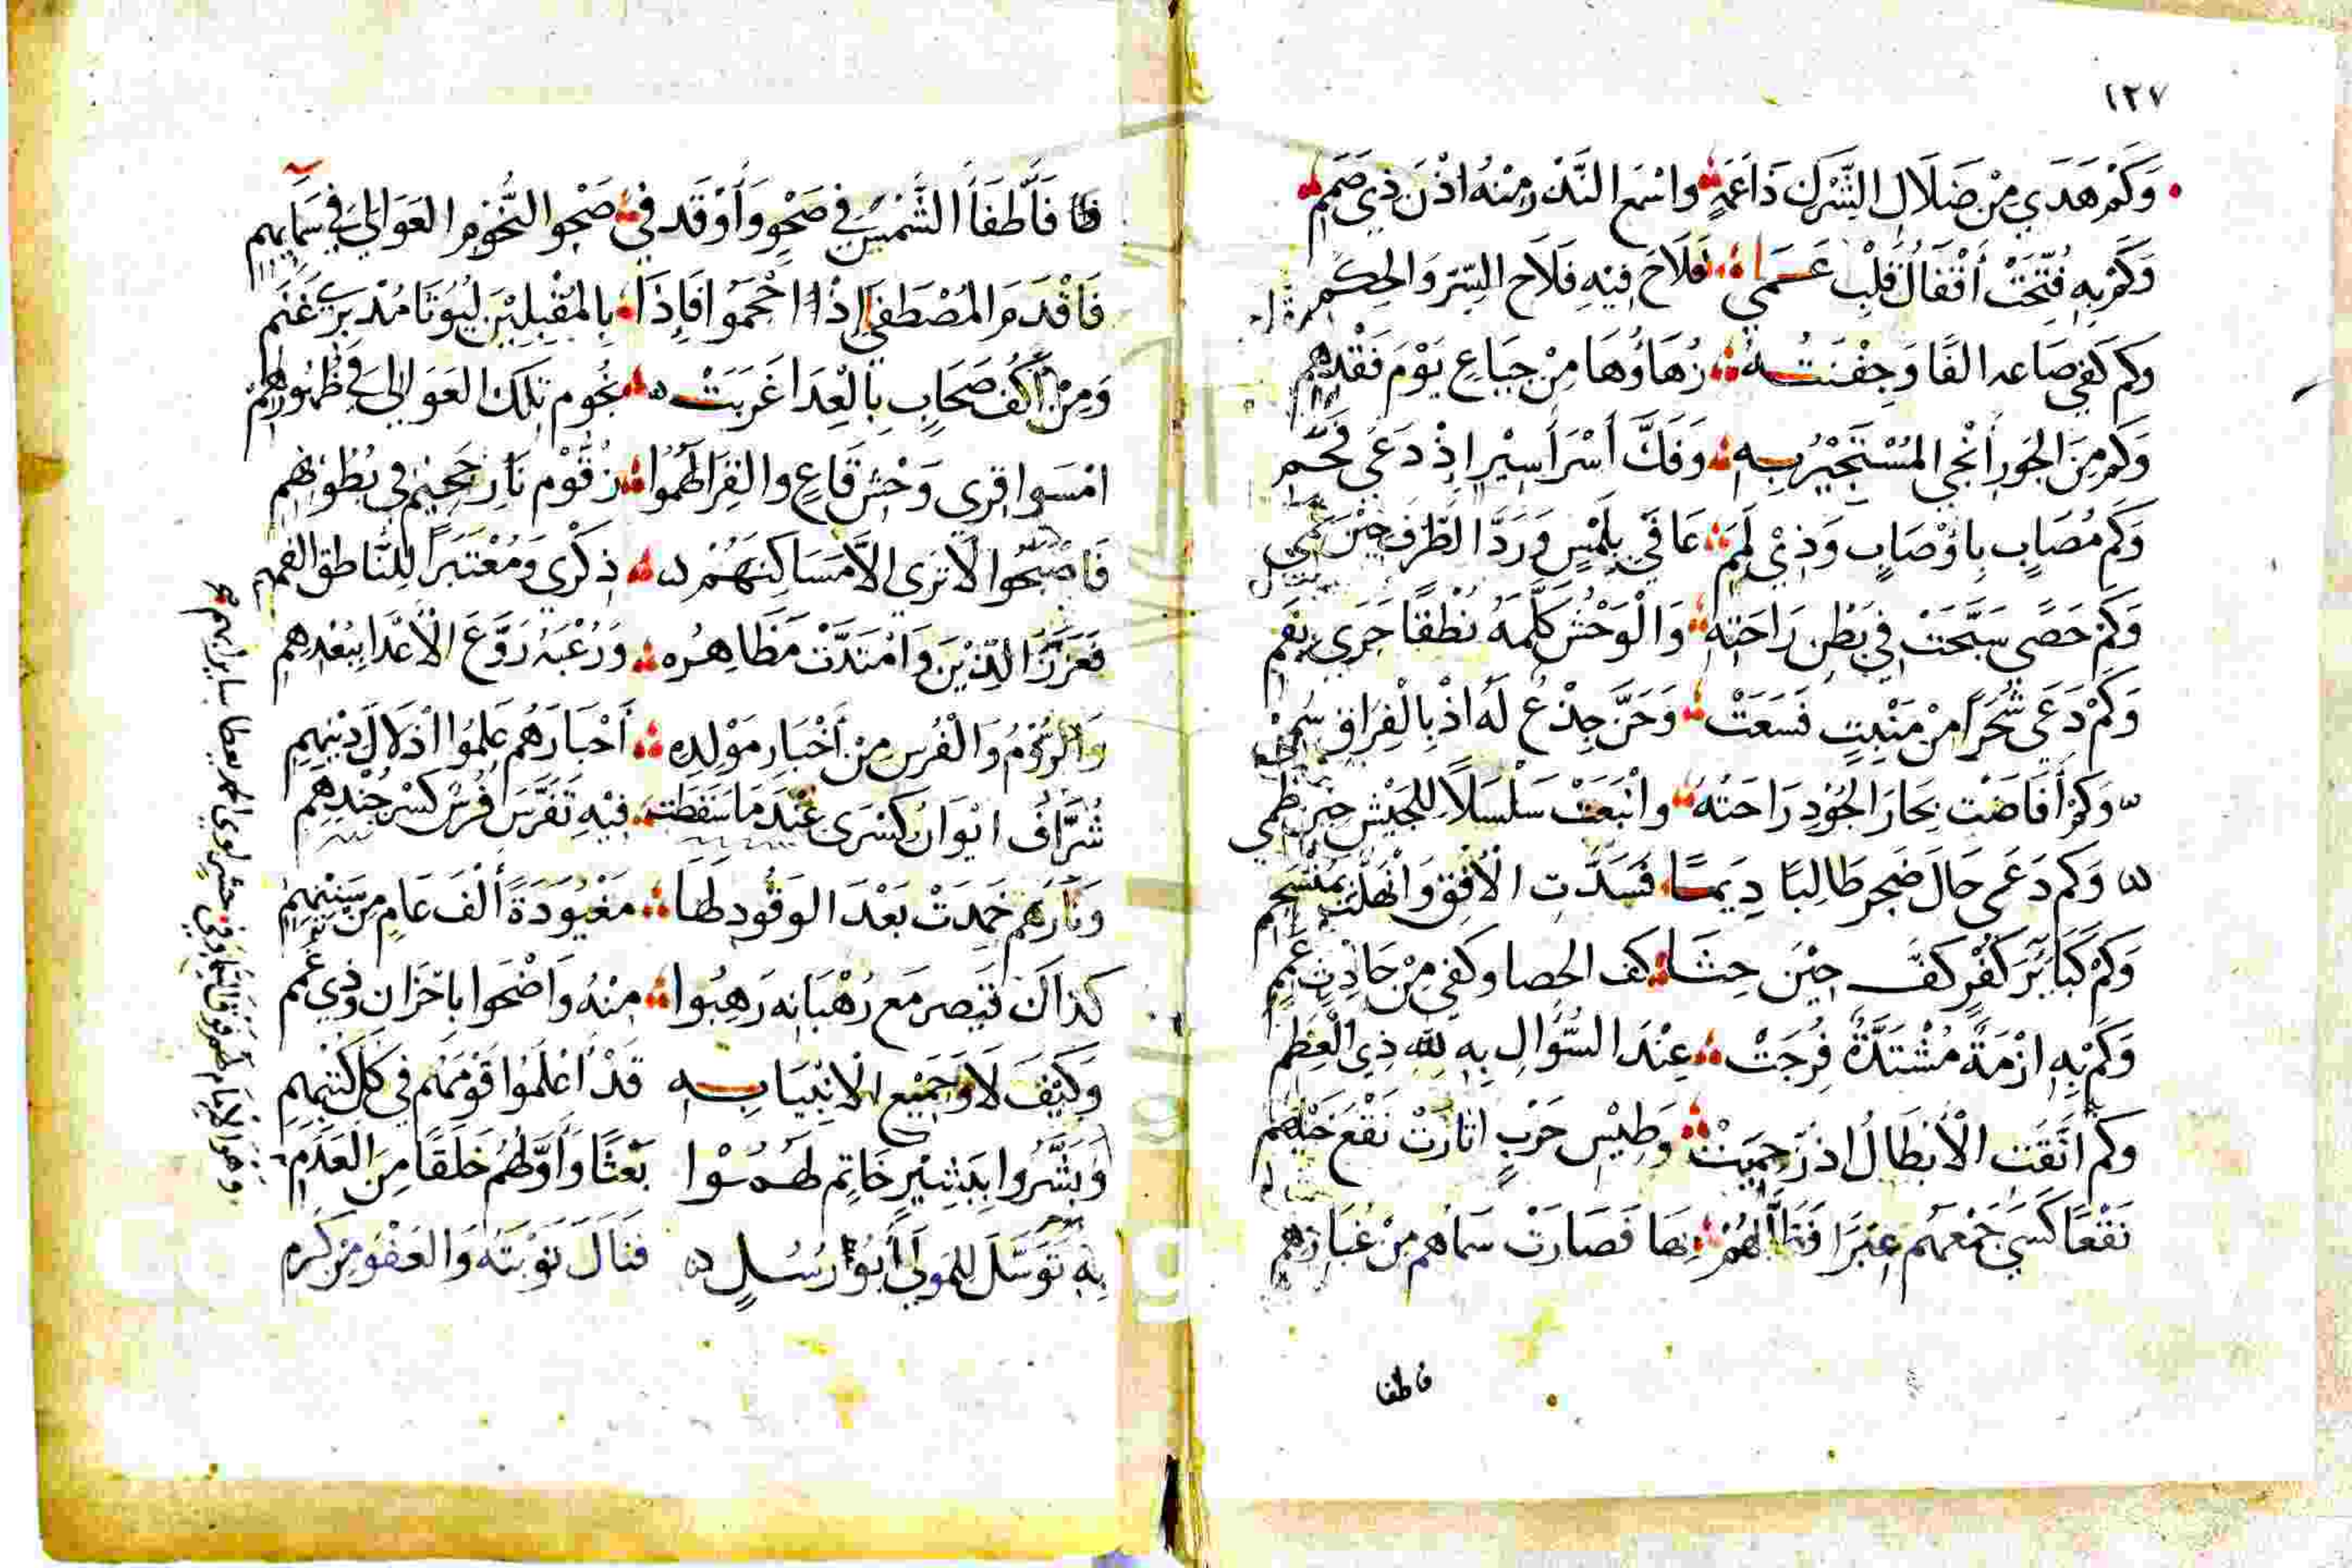 ١٢٧
وَكَمْ هَدَي مِنْ ضَلَالِ الشِّرْكِ ذَا عَمَهٍ وَاسْمَع النَّدْ مِنْهُ اذْنَ ذِي صَمَمِ
وَكَمْ بِهِ فُتِّحَتْ أَقْفَالُ قَلْبِ عَمَي فَلَاحَ فِيْهِ فَلَاح السِّرّ وَالحِكَمِ
وَكم كَفي صَاعه الفًا وَجِفْنَتُه زُهَاؤُهَا مِنْ جِيَاعِ يَوْمَ فَقْدِهِم
وَكَم مِنَ الجَورِ أَنْجي المُسْتَجِيْرُ بِه وَفَكَّ أَسْرَ أَسِيْرٍ إِذْ دَعَي
وَكَم مُصَابٍ بِاَوْصَابٍ وَذِيْ لَمَمٍ عَافَي بِلَمْسٍ وَرَدَّ الطَّرْف حِيْنَ عَمي
وَكَمْ حَصًي سَبَّحَتْ فِي بَطْنِ رَاحَتِهِ وَالْوَحْشُ كَلَّمَهُ نُطْقًا جَرَي بِفَمِ
وَكَمْ دَعَي شَجَرًا مِنْ مَنْبِتٍ فَسَعَتْ وَحَنَّ جِذْعٌ لَهُ اذْ بِالْفِرَاقِ
وَكَمْ أَفَاضَت بِحَارَ الجُوْدِ رَاحَتُهُ وانْبَعَتْ سَلْسَلاً لِلجَيْشِ حِيْنَ ظَمِي
وَكم دَعَي حَالَ ضَجر طَالِبًا دِيَمًا فَسَدَّتِ الْأُفْق وَانْهَلَّتْ بِمُنْسَجِم
وَكَمْ كَبَائِرَ كُفْرٍ كَفَّ حِيْنَ حِثَا كَف الحصا وكفي مِنْ حَادِثٍ عَمَمِ
وَكَمْ بِهِ ازْمَةً مُشْتَدَّةٌ فُرِجَتْ عِنْدَ السُّؤَالِ بِهِ لله ذِي الْعِظَمِ
وكم اتَّقَتِ الْأَبْطَالُ اذ حَمِيَتْ وَطِيْس حَرْبٍ اثَارَتْ نَقْعَ خَيْلِهم
نَقْعًا كَسَي جَمْعَهُم عِثيَرًا فَظَلَّ لَهُمْ بِهَا فَصَارَتْ سَمَاهُم مِنْ غُبَارِهِم
فاطفا
فَأَطفَأَ الشَّمْسَ فِي صَحْوٍ وَأَوْقَد فِي صَحْوِ النُّجُوْمِ العَوَالِيَ فِي سَمَايِهِم
فَاقْدَمَ المُصْطَفي إِذْ احْجَمُوا فَإِذَا بِالمُقْبِلِيْنَ لِيُوثًا مُدْبِرِيْ غَنَمِ
وَمِنْ أَكُف صَحَابٍ بِالْعِدَا غَرَبَتْ نُجُوم تِلكَ العَوَالِي فِي ظُهُورِهِمْ
امْسَوا قِرَي وَحْشِ قَاعٍ وَالقِرَا لَهُمُوا زَقُّوْم نَارِ جَحِيْم فِي بُطُوْنِهِم
فَاصْبَحُوا لَا تَرَى الاَّ مَسَاكِنَهُمْ ذِكْرَي وَمُعْتَبَرًا لِلنَّاطِقِ الفهمِ
فَعَزَّزَ الدِّيْنَ وَامْتَدَّتْ مَظَاهِرُه وَرُعْبُهُ رَوَّعَ الْأَعْدَا بِبُعْدِهِم
وَالرُّوْمُ وَالْفُرْسُ مِنْ أَخْبَارِ مَوْلِدِهِ أَحْبَارُهُم عَلِمُوا اذْلَالَ دِيْنِهِمِ
شُرَّافُ ايْوَانِ كسْرَى عِنْدَ مَا سَقَطَتْ فِيْهِ تَفَرَّسَ فُرْسٌ كَسْرَ جُنْدِهِم
وَنَارُهُم خَمَدَتْ بَعْدَ الوَقُودِ لَهَا مَعْبُوْدَةً أَلْفَ عَامٍ مِن سِنِيْنِهِم
كَذَاكَ قَيصر مَع رُهْبَانِه رَهِبُوا مِنْهُ وَاضْحَوا بِاَحْزَان وَذِي غُمَم
وَكَيْفَ لَا وَجَمِيْع الْانْبِيَا بِه قَدْ أَعْلَمُوا قَوْمَهُم فِي كُلِّ كُتْبِهِم
وَبَشَّرُوا بِبَشِيْرٍ خَاتِمٍ لَهُمُوْا بَعْثًا وَأَوَّلهُم خَلْقًا مِنَ العَدَمِ
بِهِ تَوَسَّلَ لِلمَولَي أَبُو رُسُلٍ فَنَالَ تَوْبَتَهُ وَالعَفْوَ مِنْ كَرَم